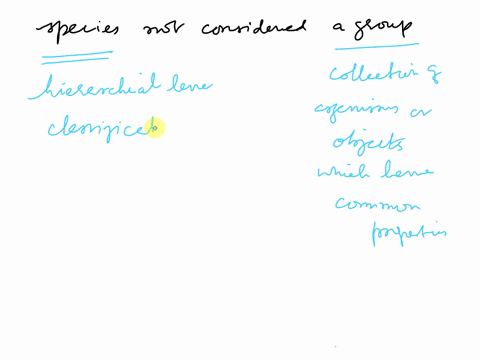 species not considered a group
hierarchial leve
classificat
collection of
organisms or
objects
which have
common
properties